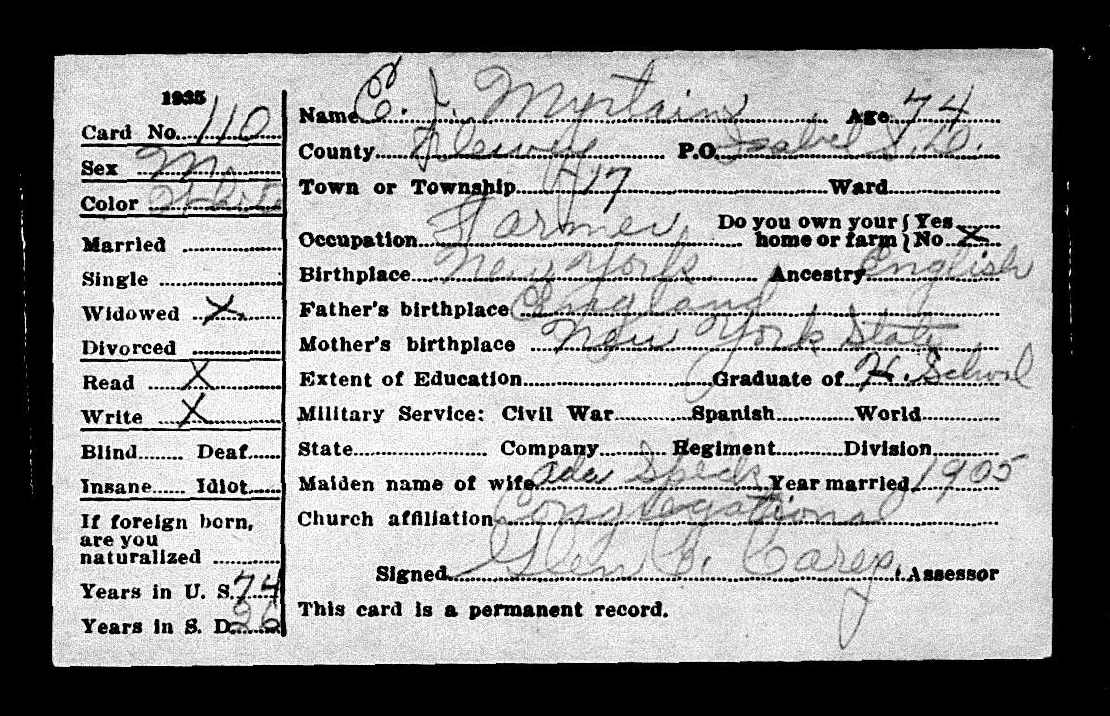 1935
Card No. 110
Sex M.
Color White
Married
Single
Widowed X
Divorced
Read X
Write X
Blind Deaf
Insane Idiot
If foreign born,
are you
naturalized
Years in U. S. 74
Years in S. D. 26
Name C. J. Age 74
County Dewey P.O. Isabel S.D.
Town or Township 17 Ward
Occupation Farmer Do you own your home or farm { Yes
No X
Birthplace New York Ancestry English
Father's birthplace England
Mother's birthplace New York State
Extent of Education Graduate of H. School
Military Service: Civil War Spanish World
State Company Regiment Division
Maiden name of wife Ada Year married 1905
Church affiliation Congregational
Signed Glen B. Carey, Assessor
This card is a permanent record.